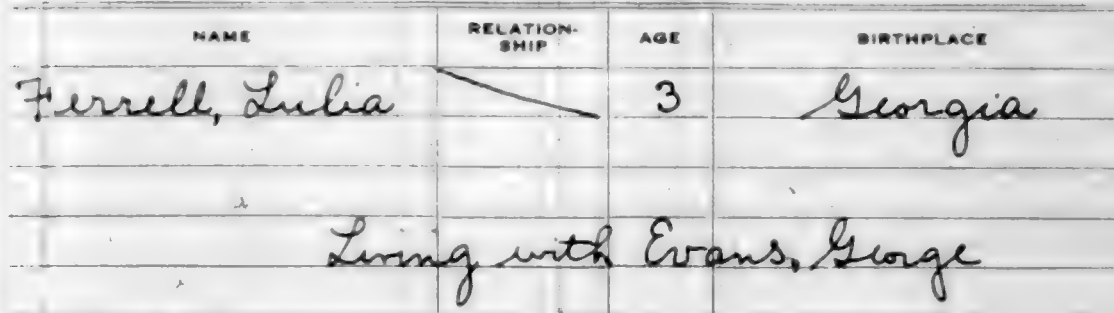 NAME RELATION-SHIP AGE BIRTHPLACE
Ferrell, Lulia 3 Georgia
Living with Evans, George